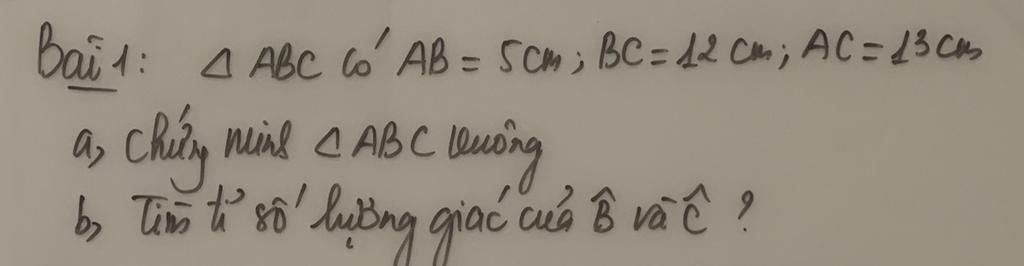 Bài 1: Δ ABC có AB = 5cm; BC = 12 cm; AC = 13 cm
a, Chứng minh Δ ABC vuông
b, Tìm tỉ số lượng giác của B̂ và Ĉ ?